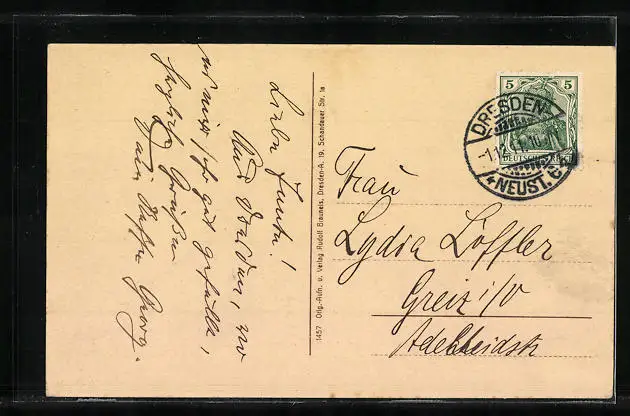 Liebe Tante!
Aus Dresden, wo
es mir sehr gut gefällt,
herzliche Grüße
Dein Neffe Georg.
1457 Orig.-Aufn. u. Verlag Rudolf Brauneis, Dresden-A. 19, Schandauer Str. 1a
5 5
DEUTSCHES REICH
DRESDEN
NEUST.
Frau
Lydia Löffler
Greiz i/V
Adelheidstr.